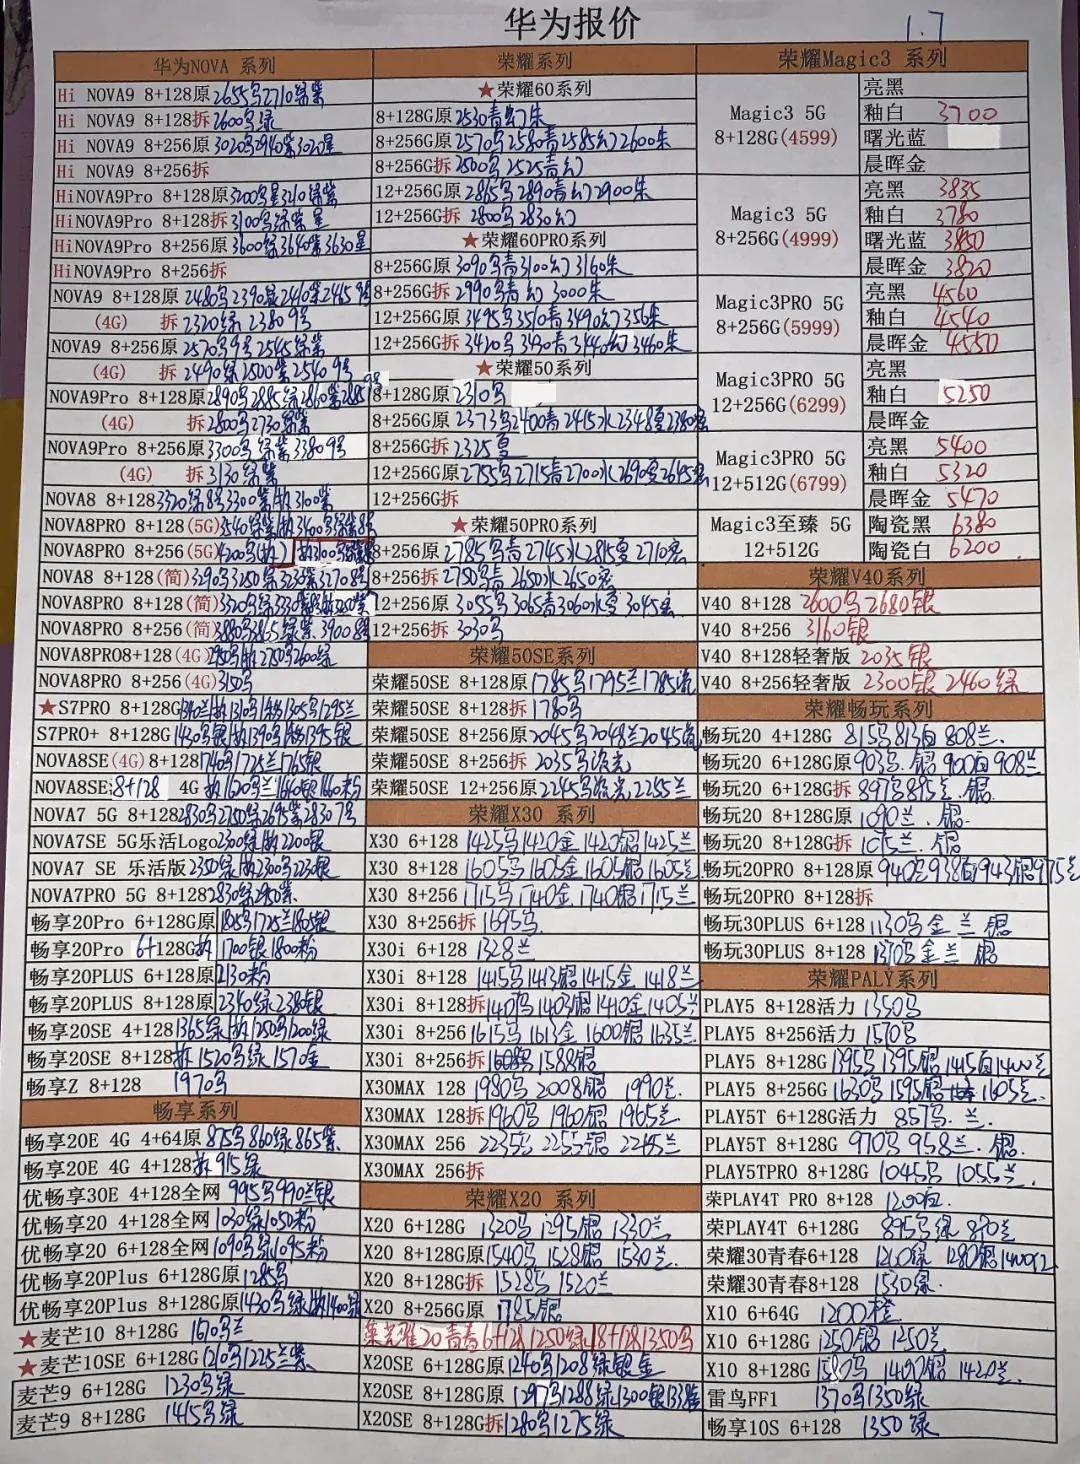 华为报价
1.7
华为NOVA 系列
Hi NOVA9 8+128原2655马2710绿紫
Hi NOVA9 8+128拆2600马绿
Hi NOVA9 8+256原3020马2940紫3020星
Hi NOVA9 8+256拆
HiNOVA9Pro 8+128原3200马星3210绿紫
HiNOVA9Pro 8+128拆3100马绿紫星
HiNOVA9Pro 8+256原3600绿3640紫3630星
HiNOVA9Pro 8+256拆
NOVA9 8+128原2480马2390绿2410紫2465
(4G) 拆2320绿2380 9号
NOVA9 8+256原2570马9号2545绿紫
(4G) 拆2490绿2500紫2540 9号
NOVA9Pro 8+128原2890马2885绿2860紫2885 9号
(4G) 拆2800马2730绿紫
NOVA9Pro 8+256原3300马绿紫3380 9号
(4G) 拆3130绿紫
NOVA8 8+128 3320绿8号3300紫拆3100紫
NOVA8PRO 8+128(5G)
NOVA8PRO 8+256(5G)4200马(拆)
NOVA8 8+128(简)3290马3250绿3230紫3270 8号
NOVA8PRO 8+128(简)3320马绿
NOVA8PRO 8+256(简)3880马3865绿紫3900 8号
NOVA8PRO8+128(4G)2950马拆2750马2600绿
NOVA8PRO 8+256(4G)3150马
★S7PRO 8+128G
S7PRO+ 8+128G1430马银拆1390马1395银
NOVA8SE(4G)8+128 1740马1725兰1765银
NOVA8SE 8+128 4G 拆1620马兰1640银1660粉
NOVA7 5G 8+128 2830马2750绿2695紫2830 7号
NOVA7SE 5G乐活Logo2300绿拆2200银
NOVA7 SE 乐活版2350绿拆2300马2230银
NOVA7PRO 5G 8+128
畅享20Pro 6+128G原1805马1725兰1805银
畅享20Pro 6+128G拆1700银1800粉
畅享20PLUS 6+128原2130粉
畅享20PLUS 8+128原2340绿2380银
畅享20SE 4+128 1365绿拆1250马1200绿
畅享20SE 8+128拆1520马绿1570金
畅享Z 8+128 1970马
畅享系列
畅享20E 4G 4+64原875马860绿865紫
畅享20E 4G 4+128拆915绿
优畅享30E 4+128全网995马990兰银
优畅享20 4+128全网1030绿1050粉
优畅享20 6+128全网1090马绿1095粉
优畅享20Plus 6+128G原1285马
优畅享20Plus 8+128G原1430马绿拆1400绿
★麦芒10 8+128G 1670马兰
★麦芒10SE 6+128G1210马1225兰紫
麦芒9 6+128G 1230马绿
麦芒9 8+128G 1415马绿
荣耀系列
★荣耀60系列
8+128G原2530青幻朱
8+256G原2570马2580青2585幻2600朱
8+256G拆2500马2525青幻
12+256G原2865马2890青幻2900朱
12+256G拆 2800马2830幻
★荣耀60PRO系列
8+256G原3090马青3100幻3160朱
8+256G拆2990马青幻3000朱
12+256G原3495马3510青3490幻356朱
12+256G拆3420马3430青3440幻3460朱
★荣耀50系列
8+128G原2310马
8+256G原2373马2400青2415水2348夏2380宏
8+256G拆2325夏
12+256G原2755马2715青2700水2690夏2695宏
12+256G拆
★荣耀50PRO系列
8+256原 2785马青2745水2815夏2710宏
8+256拆 2750马青2650水2650宏
12+256原 3055马3065青3060水夏3045宏
12+256拆 3030马
荣耀50SE系列
荣耀50SE 8+128原1785马1795兰1785流
荣耀50SE 8+128拆1780马
荣耀50SE 8+256原2045马2048兰2045流
荣耀50SE 8+256拆2035马流光
荣耀50SE 12+256原2245马流光2255兰
荣耀X30系列
X30 6+128 1425马1420金1420银1425兰
X30 8+128 1605马1605金1605银1605兰
X30 8+256 1715马1740金1740银1715兰
X30 8+256拆1695马
X30i 6+128 1328兰
X30i 8+128 1415马1413银1415金1418兰
X30i 8+128拆1401马1403银1410金1405兰
X30i 8+256 1615马1613金1600银1635兰
X30i 8+256拆1608马1588银
X30MAX 128 1980马2008银 1990兰
X30MAX 128拆1960马1960银1965兰
X30MAX 256 2235马2255银2245兰
X30MAX 256拆
荣耀X20 系列
X20 6+128G 1320马1295银1330兰
X20 8+128G原1540马1528银1530兰
X20 8+128G拆1528马1520兰
X20 8+256G原 1785银
荣耀20青春6+128 1250绿 8+128 1350马
X20SE 6+128G原1240马1208绿银金
X20SE 8+128G原1297马1288绿1300银133金
X20SE 8+128G拆1280马1275绿
荣耀Magic3 系列
Magic3 5G
8+128G(4599)
亮黑
釉白 3700
曙光蓝
晨晖金
Magic3 5G
8+256G(4999)
亮黑 3835
釉白 3780
曙光蓝 3850
晨晖金 3820
Magic3PRO 5G
8+256G(5999)
亮黑 4560
釉白 4540
晨晖金 4550
Magic3PRO 5G
12+256G(6299)
亮黑
釉白 5250
晨晖金
Magic3PRO 5G
12+512G(6799)
亮黑 5400
釉白 5320
晨晖金 5470
Magic3至臻 5G
12+512G
陶瓷黑 6380
陶瓷白 6200
荣耀V40系列
V40 8+128 2600马2680银
V40 8+256 3160银
V40 8+128轻奢版 2035银
V40 8+256轻奢版 2300银2460绿
荣耀畅玩系列
畅玩20 4+128G 815马813白808兰
畅玩20 6+128G原903马.银900白908兰
畅玩20 6+128G拆897马895兰.银
畅玩20 8+128G原1090兰.银
畅玩20 8+128G拆1075兰.银
畅玩20PRO 8+128原940马938白943银975兰
畅玩20PRO 8+128拆
畅玩30PLUS 6+128 1130马金兰银
畅玩30PLUS 8+128 1370马金兰银
荣耀PALY系列
PLAY5 8+128活力 1350马
PLAY5 8+256活力 1570马
PLAY5 8+128G1395马1395银1415白1400兰
PLAY5 8+256G1630马1595银1605兰
PLAY5T 6+128G活力 857马.兰
PLAY5T 8+128G 970马958兰.银
PLAY5TPRO 8+128G 1045马1055兰
荣PLAY4T PRO 8+128 1200
荣PLAY4T 6+128G 895马绿890兰
荣耀30青春6+128 1210绿1280银1400幻
荣耀30青春8+128 1530绿
X10 6+64G 1200橙
X10 6+128G 1250银1250兰
X10 8+128G 1580马1400银1420兰
雷鸟FF1 1370马1350绿
畅享10S 6+128 1350绿